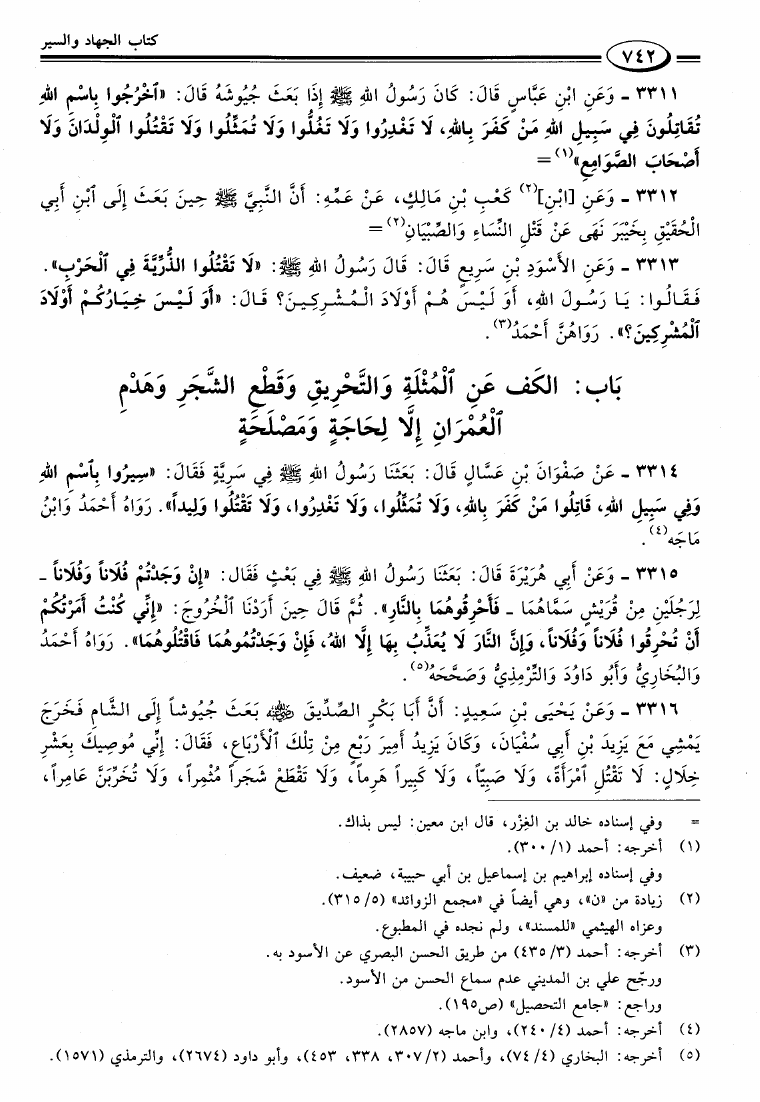 كتاب الجهاد والسير
٧٤٢
٣٣١١ ـ وَعَنِ ابْنِ عَبَّاسٍ قَالَ: كَانَ رَسُولُ اللهِ ﷺ إِذَا بَعَثَ جُيُوشَهُ قَالَ: «ٱخْرُجُوا بِاسْمِ اللهِ
تُقَاتِلُونَ فِي سَبِيلِ اللهِ مَنْ كَفَرَ بِاللهِ، لَا تَغْدِرُوا وَلَا تَغُلُّوا وَلَا تُمَثِّلُوا وَلَا تَقْتُلُوا ٱلْوِلْدَانَ وَلَا
أَصْحَابَ الصَّوَامِعِ»(١) =
٣٣١٢ ـ وَعَنِ [ابْنِ](٢) كَعْبِ بْنِ مَالِكٍ، عَنْ عَمِّهِ: أَنَّ النَّبِيَّ ﷺ حِينَ بَعَثَ إِلَى ٱبْنِ أَبِي
الْحُقَيْقِ بِخَيْبَرَ نَهَى عَنْ قَتْلِ النِّسَاءِ وَالصِّبْيَانِ(٢) =
٣٣١٣ ـ وَعَنِ الأَسْوَدِ بْنِ سَرِيعٍ قَالَ: قَالَ رَسُولُ اللهِ ﷺ: «لَا تَقْتُلُوا الذُّرِّيَّةَ فِي ٱلْحَرْبِ».
فَقَالُوا: يَا رَسُولَ اللهِ، أَوَ لَيْسَ هُمْ أَوْلَادَ الْمُشْرِكِينَ؟ قَالَ: «أَوَ لَيْسَ خِيَارُكُمْ أَوْلَادَ
ٱلْمُشْرِكِينَ؟». رَوَاهُنَّ أَحْمَدُ(٣).
بَاب: الكَف عَنِ ٱلْمُثْلَةِ وَالتَّحْرِيقِ وَقَطْعِ الشَّجَرِ وَهَدْمِ
ٱلْعُمْرَانِ إِلَّا لِحَاجَةٍ وَمَصْلَحَةٍ
٣٣١٤ ـ عَنْ صَفْوَانَ بْنِ عَسَّالٍ قَالَ: بَعَثَنَا رَسُولُ اللهِ ﷺ فِي سَرِيَّةٍ فَقَالَ: «سِيرُوا بِٱسْمِ اللهِ
وَفِي سَبِيلِ اللهِ، قَاتِلُوا مَنْ كَفَرَ بِاللهِ، وَلَا تُمَثِّلُوا، وَلَا تَغْدِرُوا، وَلَا تَقْتُلُوا وَلِيداً». رَوَاهُ أَحْمَدُ وَابْنُ
مَاجَه(٤).
٣٣١٥ ـ وَعَنْ أَبِي هُرَيْرَةَ قَالَ: بَعَثَنَا رَسُولُ اللهِ ﷺ فِي بَعْثٍ فَقَالَ: «إِنْ وَجَدْتُمْ فُلَاناً وَفُلَاناً ـ
لِرَجُلَيْنِ مِنْ قُرَيْشٍ سَمَّاهُمَا ـ فَأَحْرِقُوهُمَا بِالنَّارِ». ثُمَّ قَالَ حِينَ أَرَدْنَا ٱلْخُرُوجَ: «إِنِّي كُنْتُ أَمَرْتُكُمْ
أَنْ تُحْرِقُوا فُلَاناً وَفُلَاناً، وَإِنَّ النَّارَ لَا يُعَذِّبُ بِهَا إِلَّا اللهُ، فَإِنْ وَجَدْتُمُوهُمَا فَاقْتُلُوهُمَا». رَوَاهُ أَحْمَدُ
وَالبُخَارِيُّ وَأَبُو دَاوُدَ وَالتِّرْمِذِيُّ وَصَحَّحَهُ(٥).
٣٣١٦ ـ وَعَنْ يَحْيَى بْنِ سَعِيدٍ: أَنَّ أَبَا بَكْرٍ الصِّدِّيقَ رضي الله عنه بَعَثَ جُيُوشاً إِلَى الشَّامِ فَخَرَجَ
يَمْشِي مَعَ يَزِيدَ بْنِ أَبِي سُفْيَانَ، وَكَانَ يَزِيدُ أَمِيرَ رَبْعٍ مِنْ تِلْكَ ٱلْأَرْبَاعِ، فَقَالَ: إِنِّي مُوصِيكَ بِعَشْرِ
خِلَالٍ: لَا تَقْتُلِ ٱمْرَأَةً، وَلَا صَبِيّاً، وَلَا كَبِيراً هَرِماً، وَلَا تَقْطَعْ شَجَراً مُثْمِراً، وَلَا تُخَرِّبَنَّ عَامِراً،
= وفي إسناده خالد بن الفِزْر، قال ابن معين: ليس بذاك.
(١) أخرجه: أحمد (١/ ٣٠٠).
وفي إسناده إبراهيم بن إسماعيل بن أبي حبيبة، ضعيف.
(٢) زيادة من «ن»، وهي أيضاً في «مجمع الزوائد» (٥/ ٣١٥).
وعزاه الهيثمي «للمسند»، ولم نجده في المطبوع.
(٣) أخرجه: أحمد (٣/ ٤٣٥) من طريق الحسن البصري عن الأسود به.
ورجّح علي بن المديني عدم سماع الحسن من الأسود.
وراجع: «جامع التحصيل» (ص١٩٥).
(٤) أخرجه: أحمد (٤/ ٢٤٠)، وابن ماجه (٢٨٥٧).
(٥) أخرجه: البخاري (٤/ ٧٤)، وأحمد (٢/ ٣٠٧، ٣٣٨، ٤٥٣)، وأبو داود (٢٦٧٤)، والترمذي (١٥٧١).